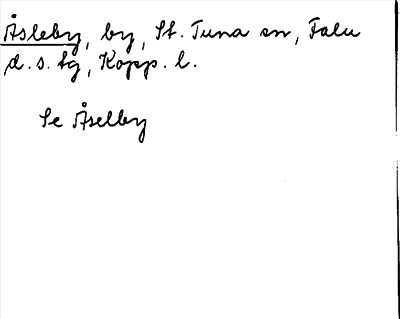 Åsleby, by, St. Tuna sn, Falu
d.s. tg, Kopp. l.
Se Åselby